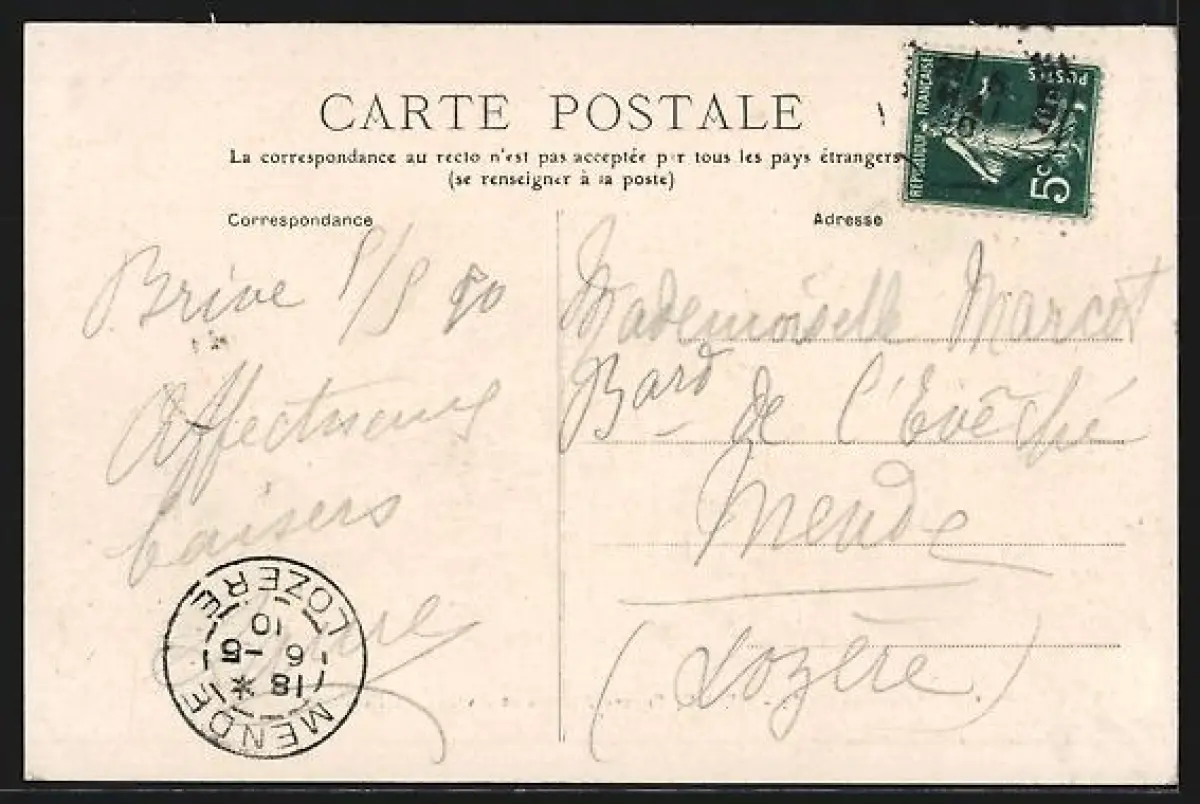 CARTE POSTALE
La correspondance au recto n'est pas acceptée par tous les pays étrangers
(se renseigner à la poste)
Correspondance
Adresse
RÉPUBLIQUE FRANÇAISE
POSTES
5c
Brive
Affectueux
baisers
Mademoiselle Marcot
Bard de l'Evêché
Mende
(Lozère)
MENDE LOZERE
18 *
6 -5
10